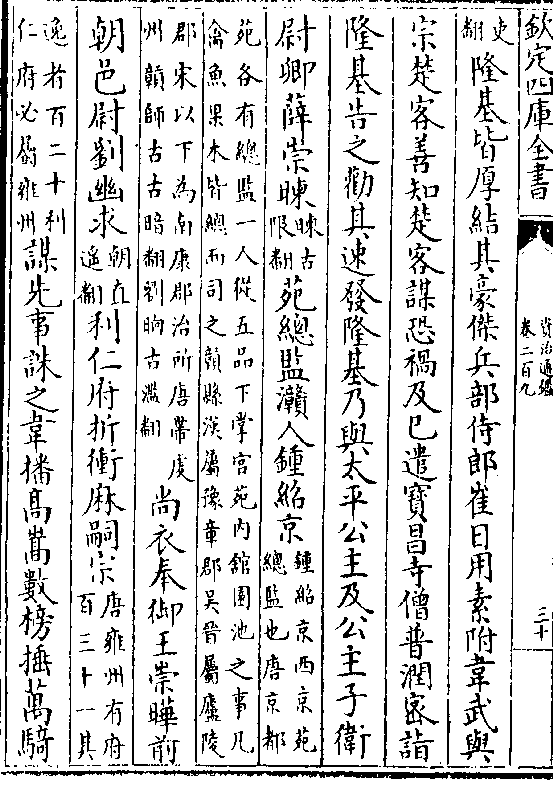 欽定四庫全書
資治通鑑
卷二百九
三十
史翻隆基皆厚結其豪傑兵部侍郎崔日用素附韋武與
宗楚客善知楚客謀恐禍及已遣寶昌寺僧普潤宻詣
隆基告之勸其速發隆基乃與太平公主及公主子衛
尉卿薛崇暕暕古限翻苑總監灨人鍾紹京鍾紹京西京苑總監也唐京都
苑各有總監一人從五品下掌宫苑内館園池之事凡禽魚果木皆總而司之贑縣漢屬豫章郡吴晉屬廬陵
郡宋以下為南康郡治所唐帶䖍州贑師古古暗翻劉昫古濫翻尚衣奉御王崇曄前
朝邑尉劉幽求朝直遥翻利仁府折衝麻嗣宗唐雍州有府百三十一其
逸者百二十利仁府必屬雍州謀先事誅之韋播高嵩數榜捶萬騎